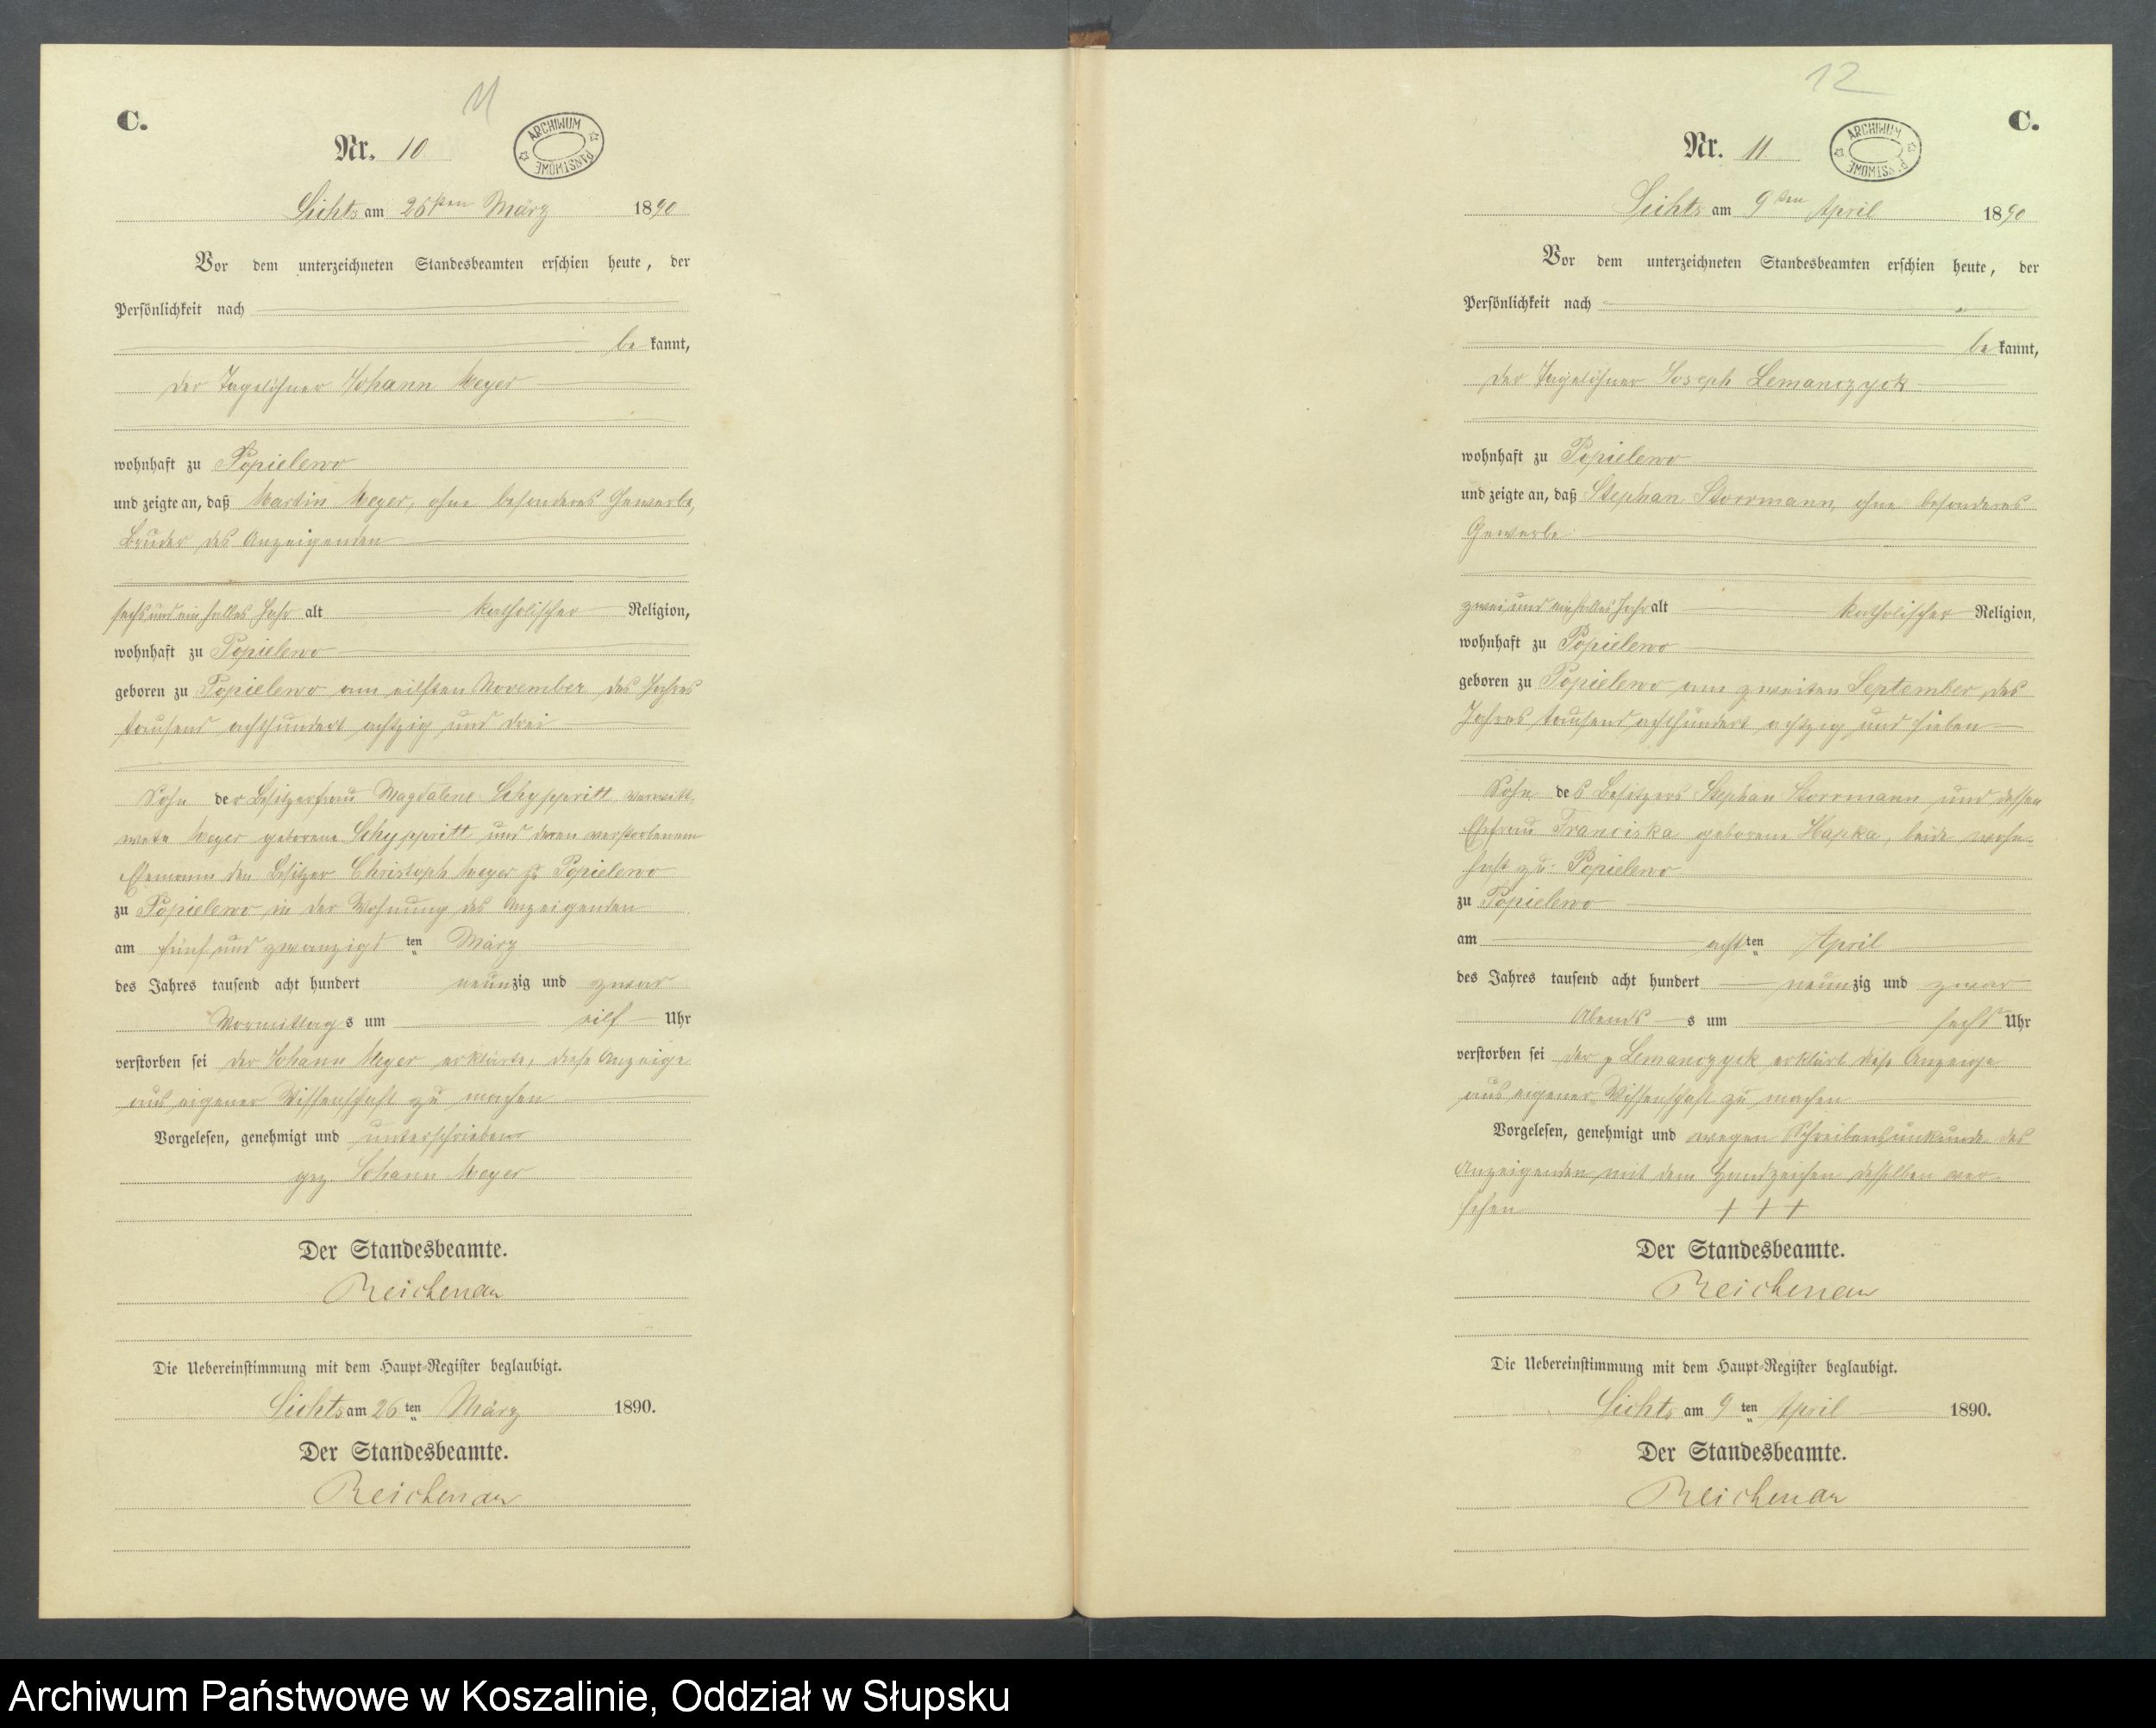 11
C.
Nr. 10.
ARCHIWUM PAŃSTWOWE
Lichts am 26ten März 1890
Vor dem unterzeichneten Standesbeamten erschien heute, der
Persönlichkeit nach
be kannt,
der Tagelöhner Johann Meyer
wohnhaft zu Popielewo
und zeigte an, daß Martin Meyer, ohne besonderes Gewerbe,
Bruder des Anzeigenden
sechs und ein halbes Jahr alt katholischer Religion,
wohnhaft zu Popielewo
geboren zu Popielewo am eilften November des Jahres
tausend achthundert achtzig und drei
Sohn der Besitzerfrau Magdalene verwitt-
wete Meyer geborene und deren verstorbenem
Ehemann den Besitzer Christoph Meyer zu Popielewo
zu Popielewo in der Wohnung des Anzeigenden
am fünf und zwanzigsten März
des Jahres tausend acht hundert neunzig und zwar
Vormittags um eilf Uhr
verstorben sei der Johann Meyer erklärte, diese Anzeige
aus eigener Wissenschaft zu machen
Vorgelesen, genehmigt und unterschrieben
gez. Johann Meyer
Der Standesbeamte.
Reichenau
Die Uebereinstimmung mit dem Haupt-Register beglaubigt.
Lichts am 26ten März 1890.
Der Standesbeamte.
Reichenau
12
C.
Nr. 11
ARCHIWUM PAŃSTWOWE
Lichts am 9ten April 1890
Vor dem unterzeichneten Standesbeamten erschien heute, der
Persönlichkeit nach
be kannt,
der Tagelöhner Joseph Lemanczyck
wohnhaft zu Popielewo
und zeigte an, daß Stephan Storrmann, ohne besonderes
Gewerbe
zwei und ein halbes Jahr alt katholischer Religion,
wohnhaft zu Popielewo
geboren zu Popielewo am zweiten September des
Jahres tausend achthundert achtzig und sieben
Sohn des Besitzers Stephan Storrmann und dessen
Ehefrau Franciska geborene Hapka, beide wohn-
haft zu Popielewo
zu Popielewo
am achten April
des Jahres tausend acht hundert neunzig und zwar
Abends s um sechs Uhr
verstorben sei der p Lemanczyck erklärt diese Anzeige
aus eigener Wissenschaft zu machen
Vorgelesen, genehmigt und wegen Schreibensunkunde des
Anzeigenden mit dem Handzeichen desselben ver-
sehen + + +
Der Standesbeamte.
Reichenau
Die Uebereinstimmung mit dem Haupt-Register beglaubigt.
Lichts am 9ten April 1890.
Der Standesbeamte.
Reichenau
Archiwum Państwowe w Koszalinie, Oddział w Słupsku